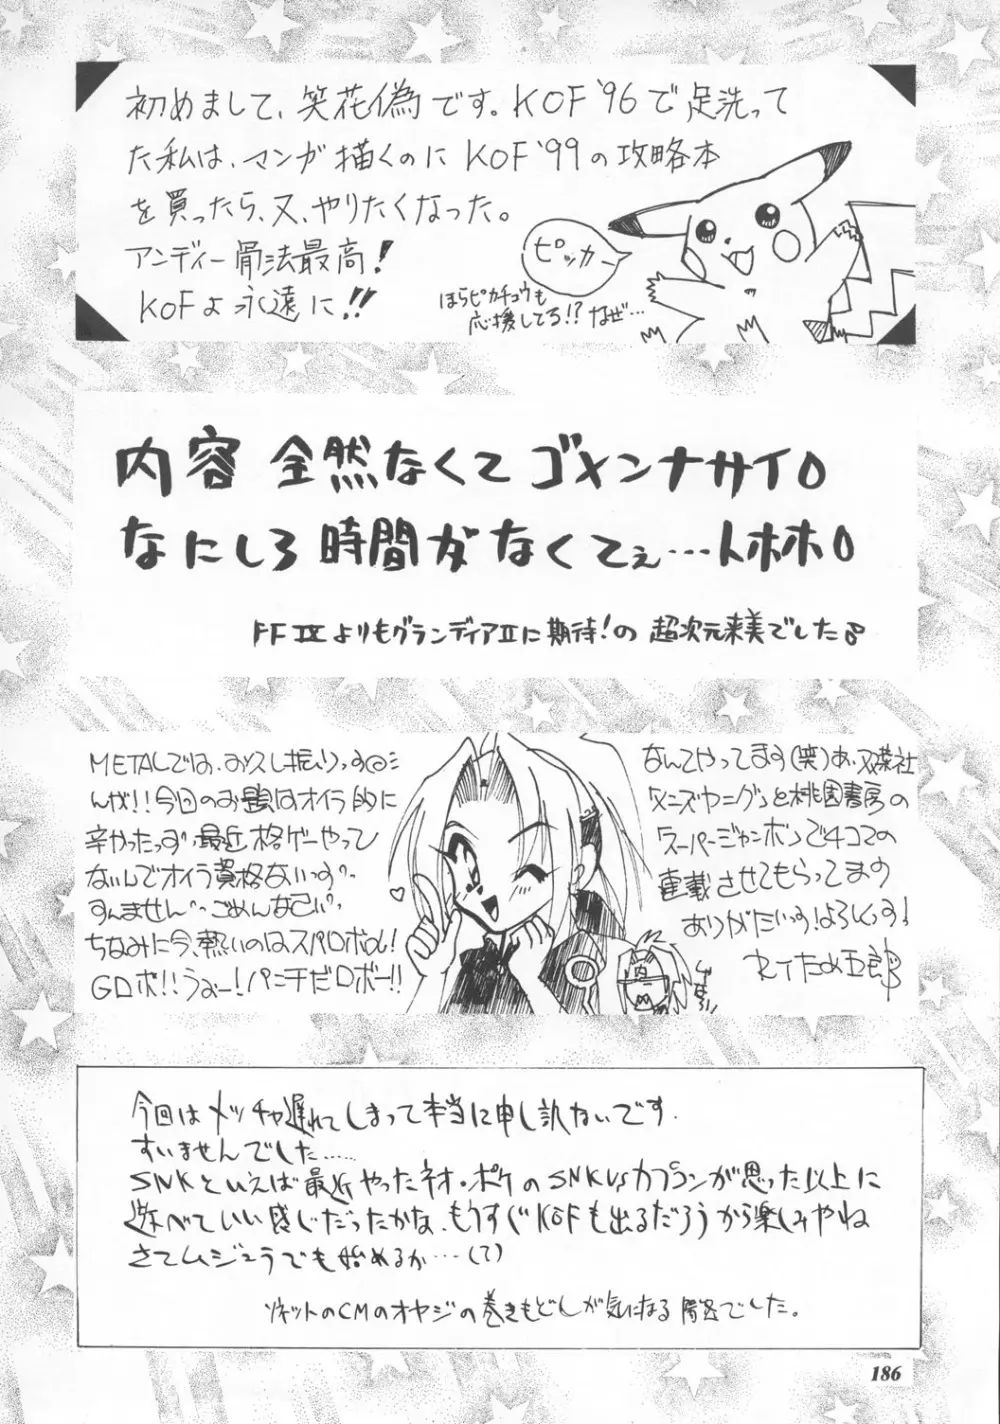 初めまして、笑花偽です。KOF'96で足洗って
た私は、マンガ描くのにKOF'99の攻略本
を買ったら、又、やりたくなった。
アンディー骨法最高!
KOFよ永遠に!!
ピッカー
ほらピカチュウも
応援してる!?なぜ…
内容 全然なくてゴメンナサイ。
なにしろ時間がなくてぇ…トホホ。
FFⅨよりもグランディアⅡに期待!の 超次元来美でした
METALでは、お久し振りっす
んが!!今回のお題はオイラ的に
辛かったっす 最近格ゲーやって
ないんでオイラ資格ないっす
すんません ごめんなさい
ちなみに今、熱いのはスパロボα!
Gロボ!!うぉー!パンチだロボー!!
なんてやってます(笑)あ、双葉社
「メンズヤング」と桃園書房の
「スーパージャンボ」で4コマの
連載させてもらってます
ありがたいっす!よろしくっす!
セイため五郎
今回はメッチャ遅れてしまって本当に申し訳ないです.
すいませんでした……
SNKといえば最近やったネオ・ポケのSNKVSカプコンが思った以上に
遊べていい感じだったかな、もうすぐKOFも出るだろうから楽しみやね
さてムジュラでも始めるか…(了)
ソネットのCMのオヤジの巻きもどしが気になる でした。
186